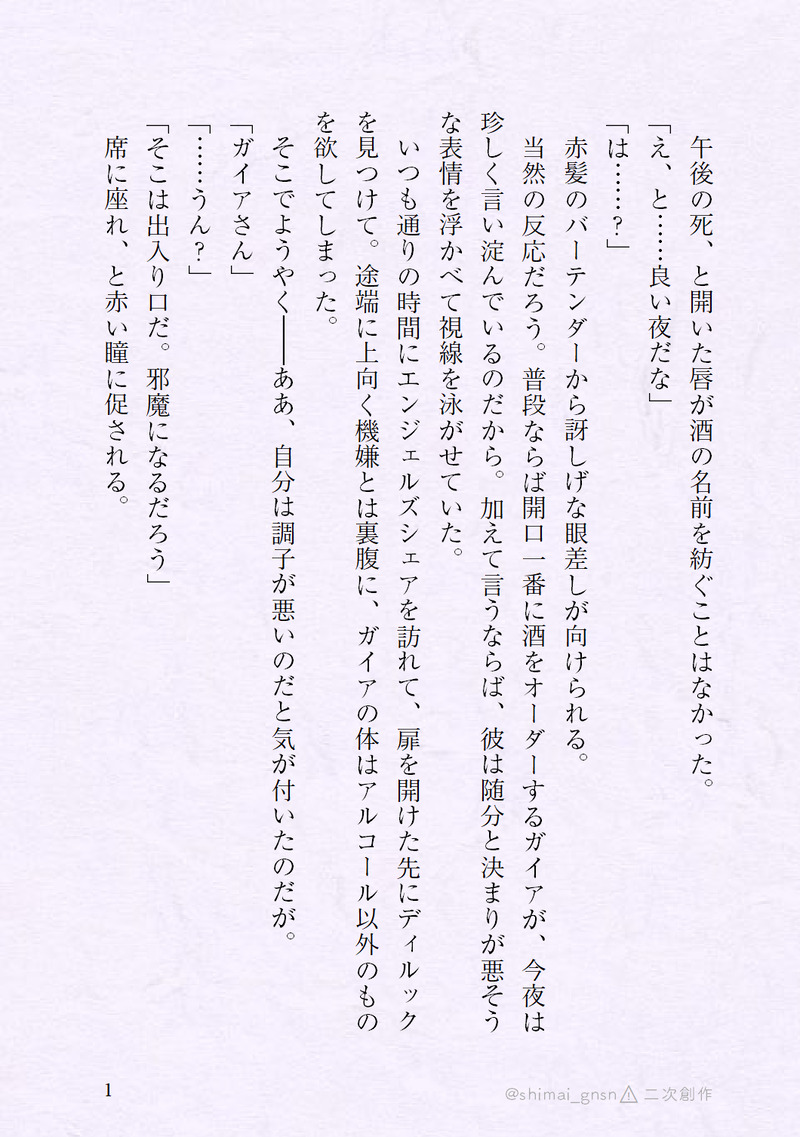 午後の死、と開いた唇が酒の名前を紡ぐことはなかった。
「え、と……良い夜だな」
「は……？」
　赤髪のバーテンダーから訝しげな眼差しが向けられる。
　当然の反応だろう。普段ならば開口一番に酒をオーダーするガイアが、今夜は
珍しく言い淀んでいるのだから。加えて言うならば、彼は随分と決まりが悪そう
な表情を浮かべて視線を泳がせていた。
　いつも通りの時間にエンジェルズシェアを訪れて、扉を開けた先にディルック
を見つけて。途端に上向く機嫌とは裏腹に、ガイアの体はアルコール以外のもの
を欲してしまった。
　そこでようやく――ああ、自分は調子が悪いのだと気が付いたのだが。
「ガイアさん」
「……うん？」
「そこは出入り口だ。邪魔になるだろう」
　席に座れ、と赤い瞳に促される。
1
@shimai_gnsn⚠二次創作